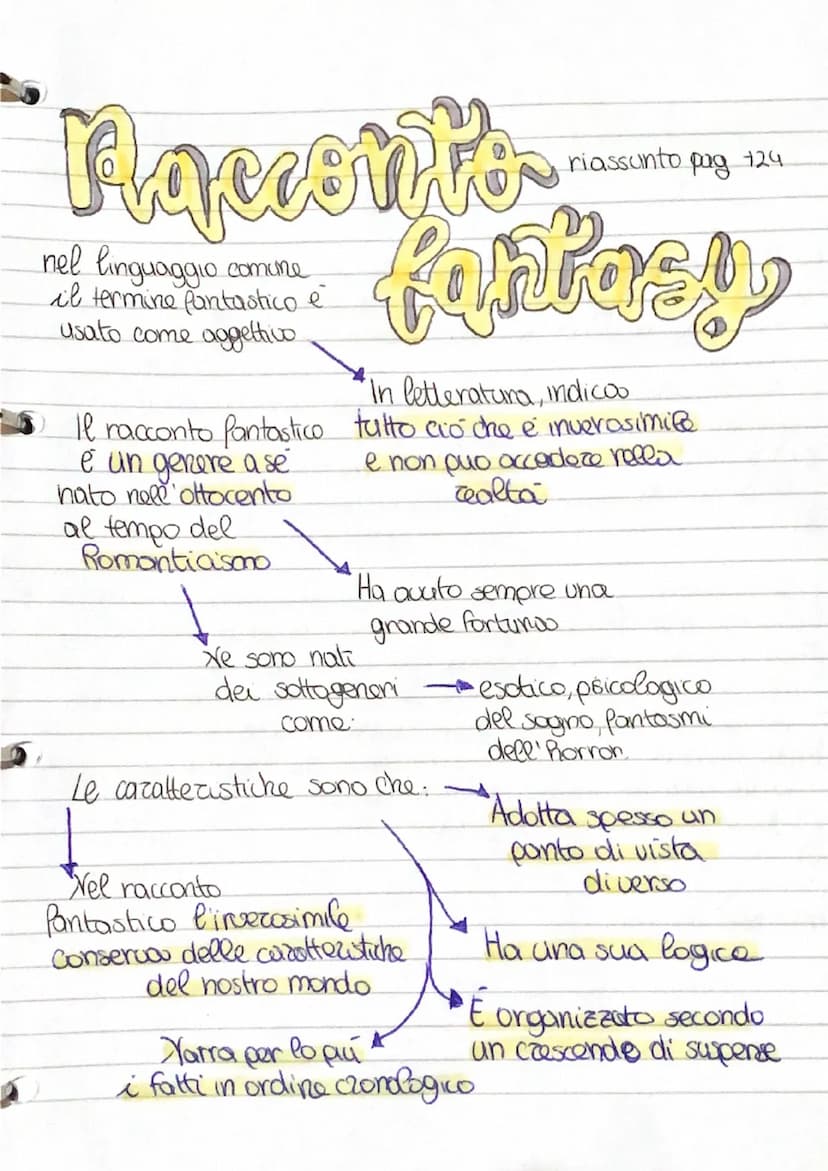 Racconto
fantasy
riassunto pag 124
nel linguaggio comune
il termine fantastico è
usato come aggettivo
In letteratura, indica
tutto ciò che è inverosimile
e non può accadere nella
realtà
Il racconto fantastico
è un genere a sé
nato nell'ottocento
al tempo del
Romanticismo
Ha avuto sempre una
grande fortuna
Ne sono nati
dei sottogeneri
come:
esotico, psicologico
del sogno, fantasmi
dell'horror.
Le caratteristiche sono che:
Adotta spesso un
punto di vista
diverso
Nel racconto
fantastico l'inverosimile
conserva delle caratteristiche
del nostro mondo
Ha una sua logica
È organizzato secondo
un crescendo di suspense
Narra per lo più
i fatti in ordine cronologico